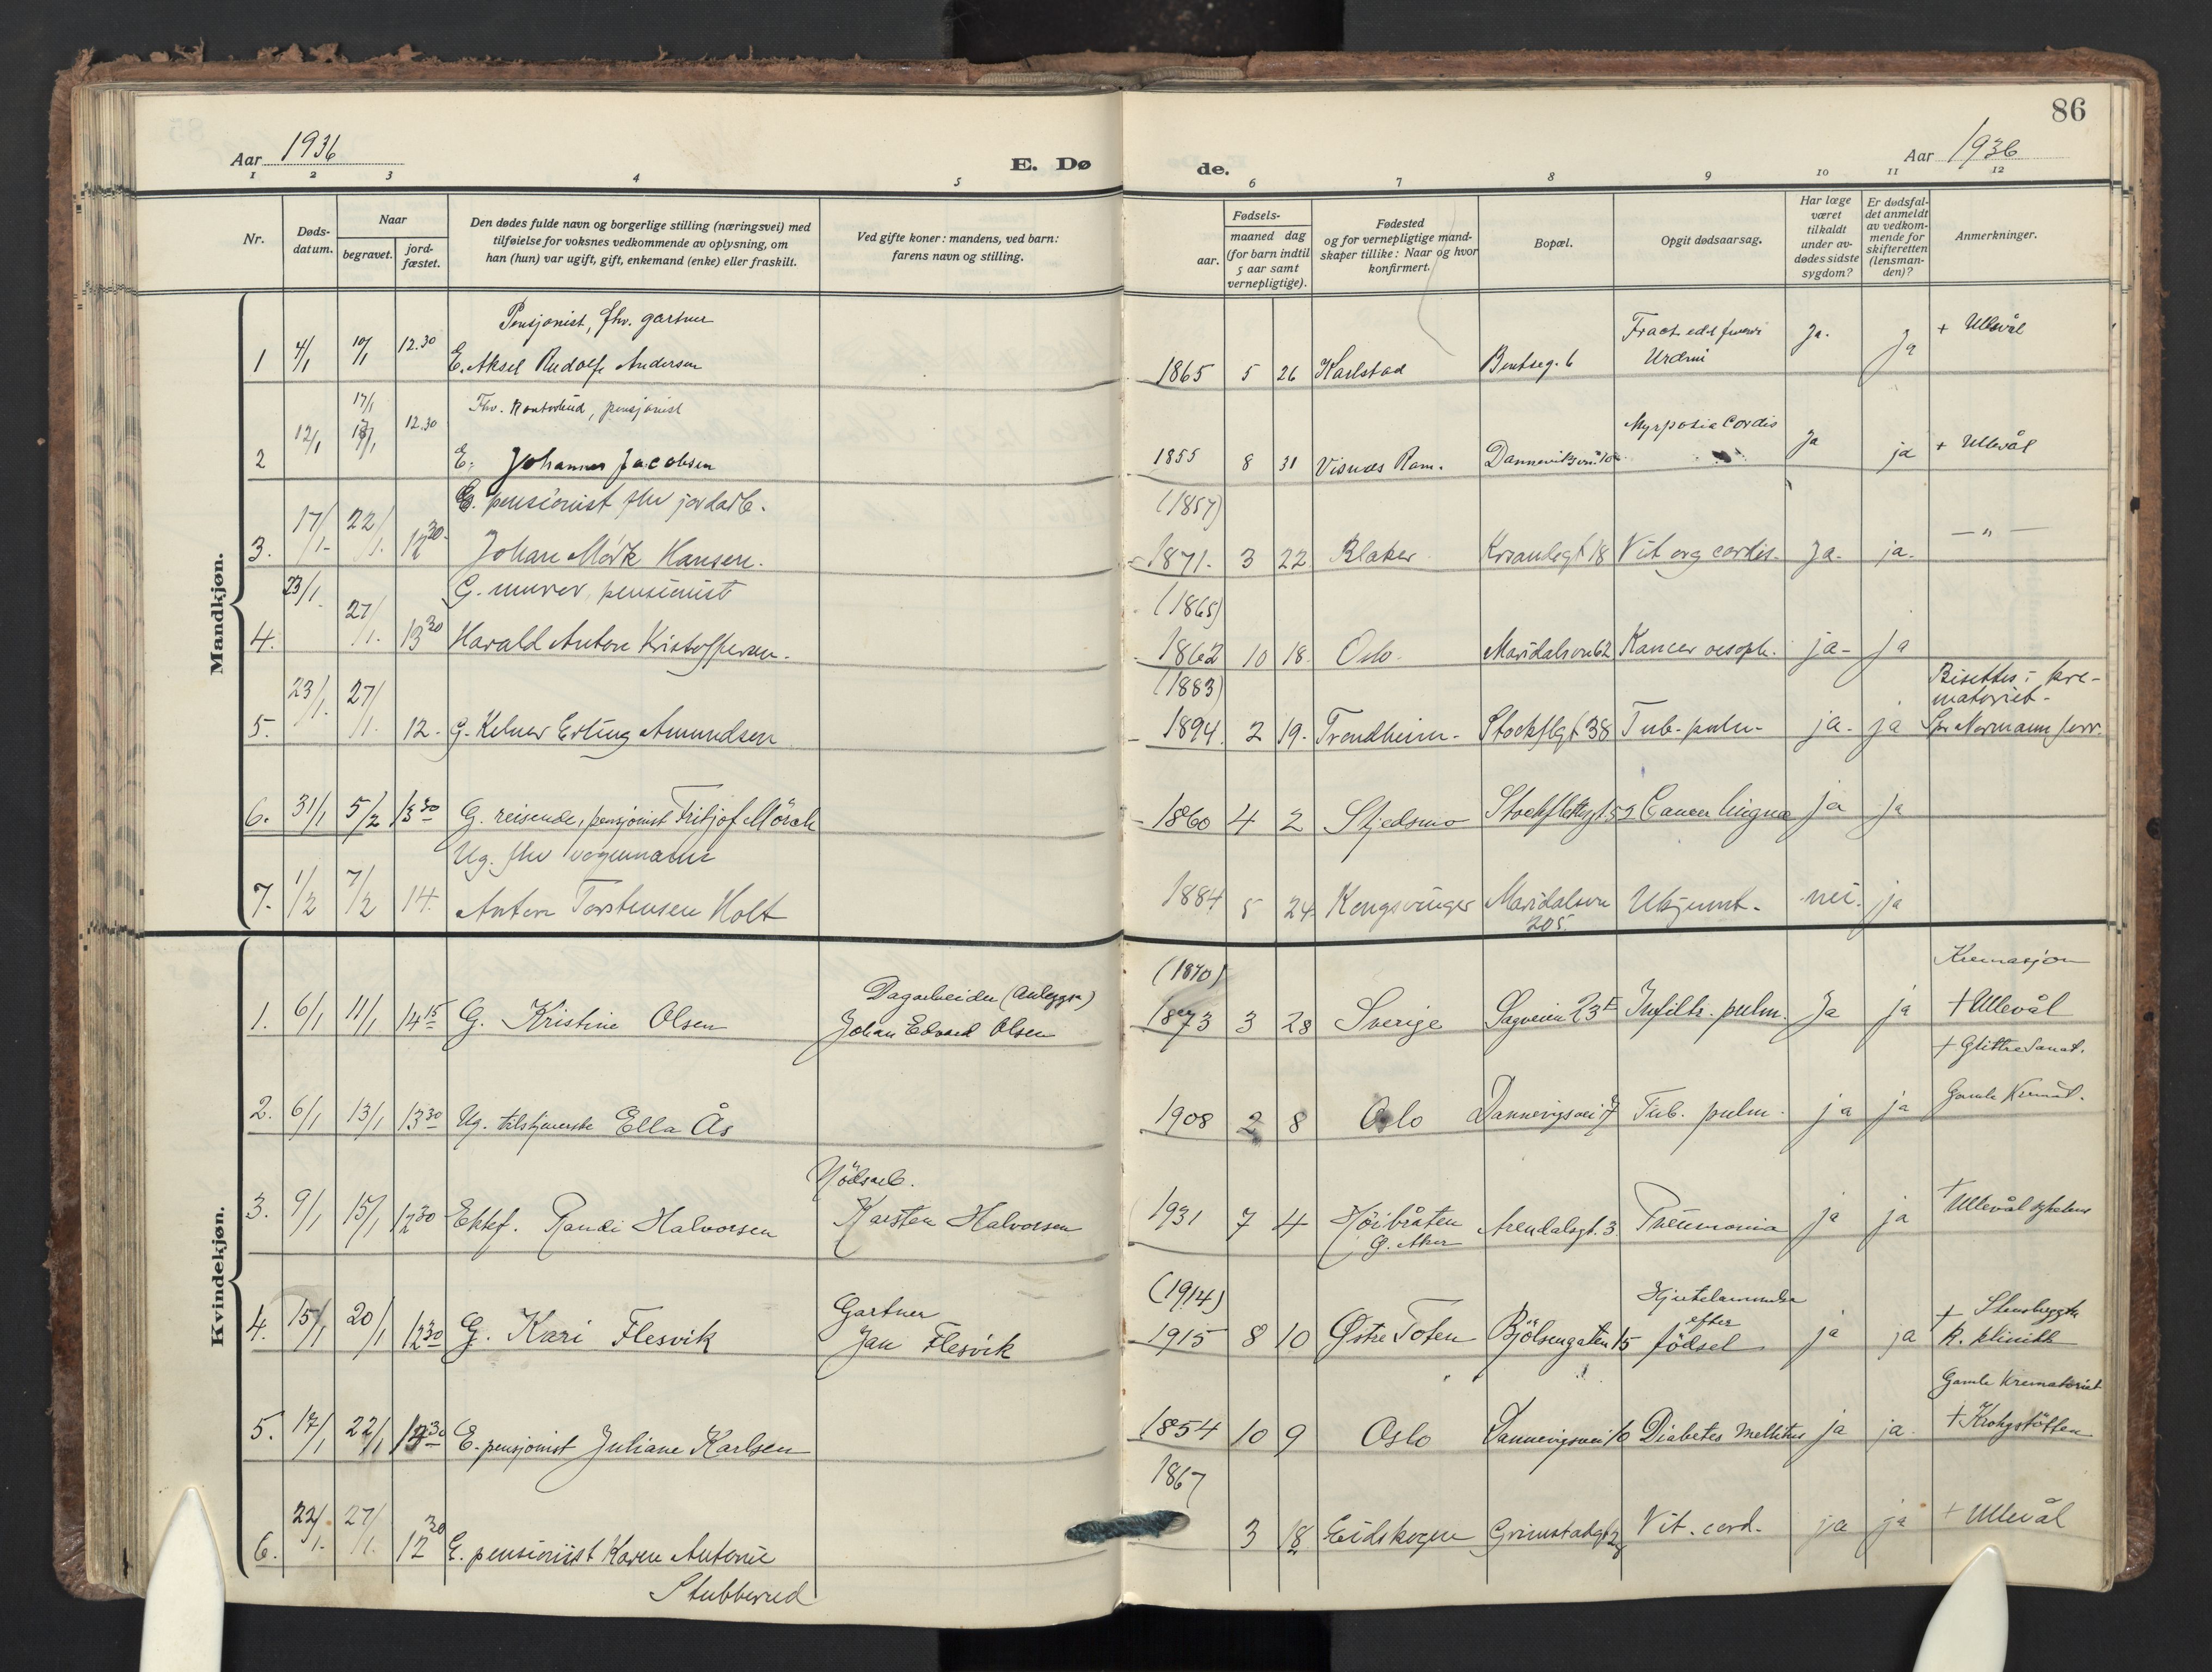 86
Aar 1936
E. Dø
de.
Aar 1936
1 2 3 4 5 6 7 8 9 10 11 12
Nr.
Døds-
datum.
Naar
begravet.
jord-
fæstet.
Den dødes fulde navn og borgerlige stilling (næringsvei) med
tilføielse for voksnes vedkommende av oplysning, om
han (hun) var ugift, gift, enkemand (enke) eller fraskilt.
Ved gifte koner: mandens, ved barn:
farens navn og stilling.
Fødsels-
aar.
maaned dag
(for barn indtil
5 aar samt
vernepligtige).
Fødested
og for vernepligtige mand-
skaper tillike: Naar og hvor
konfirmert.
Bopæl.
Opgit dødsaarsag.
Har læge
været
tilkaldt
under av-
dødes sidste
sygdom?
Er dødsfal-
det anmeldt
av vedkom-
mende for
skifteretten
(lensman-
den)?
Anmerkninger.
Mandkjøn.
Pensjonist, fhv. gartner
1 4/1 10/1 12.30 E. Aksel Rudolf Andersen 1865 5 26 Karlstad Bentseg. 6 Fract. Ja. Ja + Ullevål
Fhv. kontorbud, pensjonist
17/1
2 12/1 12.30 E. Johannes Jacobsen 1855 8 31 Visnes Cordis Ja ja + Ullevål
E. pensionist fhv jordarb. (1857)
3. 17/1 22/1. 12 30 Johan Mörk Hansen. 1871. 3 22 Blaker Krsandsgt 18 Vit org cordis. Ja. ja. — " —
G. murer, pensionist (1865)
4. 23/1. 27/1. 13 30 Harald Anton Kristoffersen. 1862 10 18. Oslo. Maridalsvn 62 Kancer oesoph. ja- Ja
(1883) Bisettes i kre-
matoriet.
5. 23/1. 27/1. 12. G. Kelner Erling Amundsen 1894. 2 19. Trondheim. Stockflgt 38 Tub. pulm. ja. ja Spr Normann forr.
6. 31/1 5/2 13 30 G. reisende, pensjonist Fritjof Mörch 1860 4 2 Skjedsmo Stockflethsgt. 52 Cancer lingua ja ja
Ug. fhv vognmann
7. 1/2 7/2 14. Anton Torstensen Holt 1884 5 24. Kongsvinger Maridalsvn 205. Ukjennt. nei. ja
Kvindekjøn.
(1870) Kremasjon
Dagarbeider (Anleggs)
1. 6/1 11/1 14 15 G. Kristine Olsen Johan Edvard Olsen 1873 3 28 Sverige Sagveien 23 Infiltr. pulm. Ja ja + Ullevål
+ Glittre Sanat.
2. 6/1 13/1 13 30 Ug. Ella Ås 1908 2 8 Oslo Dannevigsvei 7 Tub. pulm. ja ja Gamle Kremat.
Nödsarb.
3. 9/1 15/1 12 30 Ektef. Randi Halvorsen Karsten Halvorsen 1931 7 4 Höibråten Ö. Aker Arendalsgt. 3. Pneumonia ja ja + Ullevål sykehus
Gartner (1914) Hjertelammelse
efter + Stensbyggtn
4. 15/1 20/1 12 30 G. Kari Flesvik Jan Flesvik 1915 8 10 Østre Toten Bjölsengaten 15 födsel ja ja K. klinikk
Gamle Krematoriet
5. 17/1 22/1 E. pensjonist Juliane Karlsen 1854 10 9 Oslo Dannevigsvei 10 Diabetes Mellitus ja ja. + Krohgstötten
1867
6. 22/1. 27/1. 12 30 E. pensionist Karen Antonie 3 18 Eidskogen Grimstadgt Vit. cord. ja ja + Ullevål
Stubberud